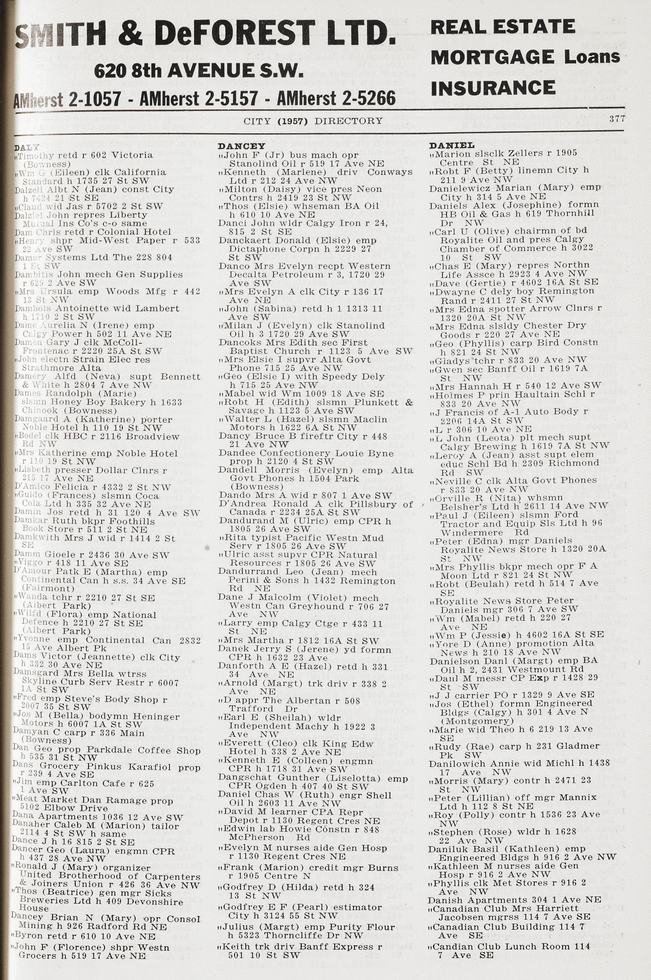 SMITH & DeFOREST LTD.
620 8th AVENUE S.W.
AMherst 2-1057 - AMherst 2-5157 - AMherst 2-5266
REAL ESTATE
MORTGAGE Loans
INSURANCE
CITY (1957) DIRECTORY
377
DALY
"Timothy retd r 602 Victoria
(Bowness)
"Wm G (Eileen) clk California
Standard h 1735 27 St SW
Dalzell Albt N (Jean) const City
h 7424 21 St SE
"Claud wid Jas r 5702 2 St SW
Dalziel John repres Liberty
Mutual Ins Co's c-o same
Dam Chris retd r Colonial Hotel
"Henry shpr Mid-West Paper r 533
22 Ave SW
Damar Systems Ltd The 228 804
1 St SW
Dambitis John mech Gen Supplies
r 625 2 Ave SW
"Mrs Ursula emp Woods Mfg r 442
13 St NW
Dambois Antoinette wid Lambert
h 1710 2 St SW
Dame Aurelia N (Irene) emp
Calgy Power h 502 11 Ave NE
Damen Gary J clk McColl-
Frontenac r 2220 25A St SW
"John electn Strain Elec res
Strathmore Alta
Damery Alfd (Neva) supt Bennett
& White h 2804 7 Ave NW
Dames Randolph (Marie)
slsmn Honey Boy Bakery h 1633
Chinook (Bowness)
Damgaard A (Katherine) porter
Noble Hotel h 110 19 St NW
"Bodel clk HBC r 2116 Broadview
Rd NW
"Mrs Katherine emp Noble Hotel
r 110 19 St NW
"Lisbeth presser Dollar Clnrs r
215 17 Ave NE
D'Amico Felicia r 4332 2 St NW
"Guido (Frances) slsmn Coca
Cola Ltd h 335 32 Ave NE
Damin Jos retd h 31 120 4 Ave SW
Damkar Ruth bkpr Foothills
Book Store r 511 2 St NE
Damkwith Mrs J wid r 1414 2 St
SE
Damm Gioele r 2436 30 Ave SW
"Viggo r 418 11 Ave SE
D'Amour Park E (Martha) emp
Continental Can h s.s. 34 Ave SE
(Fairmont)
"Wanda tchr r 2210 27 St SE
(Albert Park)
"Wilfd (Flora) emp National
Defence h 2210 27 St SE
(Albert Park)
"Yvonne emp Continental Can 2832
15 Ave Albert Pk
Dams Victor (Jeannette) clk City
h 332 30 Ave NE
Damsgard Mrs Bella wtrss
Skyline Curb Serv Restr r 6007
1A St SW
"Fred emp Steve's Body Shop r
2007 35 St SW
"Jos M (Bella) bodymn Heninger
Motors h 6007 1A St SW
Damyan C carp r 336 Main
(Bowness)
Dan Geo prop Parkdale Coffee Shop
h 535 31 St NW
Dans Grocery Pinkus Karafiol prop
r 239 4 Ave SE
"Jim emp Carlton Cafe r 625
1 Ave SW
"Meat Market Dan Ramage prop
5102 Elbow Drive
Dana Apartments 1036 12 Ave SW
Danaher Caleb M (Marion) tailor
2114 4 St SW h same
Dance J h 16 815 2 St SE
Dancer Geo (Laura) engmn CPR
h 437 28 Ave NW
"Ronald J (Mary) organizer
United Brotherhood of Carpenters
& Joiners Union r 426 36 Ave NW
"Thos (Beatrice) gen mgr Sicks
Breweries Ltd h 409 Devonshire
House
Dancey Brian N (Mary) opr Consol
Mining h 926 Radford Rd NE
"Byron retd r 610 10 Ave NE
"John F (Florence) shpr Westn
Grocers h 519 17 Ave NE
DANCEY
"John F (Jr) bus mach opr
Stanolind Oil r 519 17 Ave NE
"Kenneth (Marlene) driv Conways
Ltd r 212 24 Ave NW
"Milton (Daisy) vice pres Neon
Contrs h 2419 23 St NW
"Thos (Elsie) whseman BA Oil
h 610 10 Ave NE
Danci John wldr Calgy Iron r 24,
815 2 St SE
Danckaert Donald (Elsie) emp
Dictaphone Corpn h 2229 27
St SW
Danco Mrs Evelyn recpt Western
Decalta Petroleum r 3, 1720 29
Ave SW
"Mrs Evelyn A clk City r 136 17
Ave NE
"John (Sabina) retd h 1 1313 11
Ave SW
"Milan J (Evelyn) clk Stanolind
Oil h 3 1720 29 Ave SW
Dancoks Mrs Edith sec First
Baptist Church r 1123 5 Ave SW
"Mrs Elsie I supvr Alta Govt
Phone 715 25 Ave NW
"Geo (Elsie I) with Speedy Dely
h 715 25 Ave NW
"Mabel wid Wm 1009 18 Ave SE
"Robt H (Edith) slsmn Plunkett &
Savage h 1123 5 Ave SW
"Walter L (Hazel) slsmn Maclin
Motors h 1622 6A St NW
Dancy Bruce B fireftr City r 448
21 Ave NW
Dandee Confectionery Louie Byne
prop h 2120 4 St SW
Dandell Morris (Evelyn) emp Alta
Govt Phones h 1504 Park
(Bowness)
Dando Mrs A wid r 807 1 Ave SW
D'Andrea Ronald A clk Pillsbury of
Canada r 2234 25A St SW
Dandurand M (Ulric) emp CPR h
1805 26 Ave SW
"Rita typist Pacific Westn Mud
Serv r 1805 26 Ave SW
"Ulric asst supvr CPR Natural
Resources r 1805 26 Ave SW
Dandurrand Leo (Jean) mech
Perini & Sons h 1432 Remington
Rd NE
Dane J Malcolm (Violet) mech
Westn Can Greyhound r 706 27
Ave NW
"Larry emp Calgy Ctge r 433 11
St NE
"Mrs Martha r 1812 16A St SW
Danek Jerry S (Jerene) yd formn
CPR h 1632 23 Ave
Danforth A E (Hazel) retd h 331
34 Ave NE
"Arnold (Margt) trk driv r 338 2
Ave NE
"D appr The Albertan r 508
Trafford Dr
"Earl E (Sheilah) wldr
Independent Machy h 1922 3
Ave NW
"Everett (Cleo) clk King Edw
Hotel h 338 2 Ave NE
"Kenneth E (Colleen) engmn
CPR h 1718 31 Ave SW
Dangschat Gunther (Liselotta) emp
CPR Ogden h 407 40 St SW
Daniel Chas W (Ruth) engr Shell
Oil h 2603 11 Ave NW
"David M learner CPA Repr
Depot r 1130 Regent Cres NE
"Edwin lab Howie Constn r 848
McPherson Rd
"Evelyn M nurses aide Gen Hosp
r 1130 Regent Cres NE
"Frank (Marion) credit mgr Burns
r 1905 Centre N
"Godfrey D (Hilda) retd h 324
13 St NW
"Godfrey E F (Pearl) estimator
City h 3124 55 St NW
"Julius (Margt) emp Purity Flour
h 5323 Thorncliffe Dr NW
"Keith trk driv Banff Express r
501 10 St SW
DANIEL
"Marion slsclk Zellers r 1905
Centre St NE
"Robt F (Betty) linemn City h
211 9 Ave NW
Danielewicz Marian (Mary) emp
City h 314 5 Ave NE
Daniels Alex (Josephine) formn
HB Oil & Gas h 619 Thornhill
Dr NW
"Carl U (Olive) chairmn of bd
Royalite Oil and pres Calgy
Chamber of Commerce h 3022
10 St SW
"Chas E (Mary) repres Northn
Life Assce h 2923 4 Ave NW
"Dave (Gertie) r 4602 16A St SE
"Dwayne C dely boy Remington
Rand r 2411 27 St NW
"Mrs Edna spotter Arrow Clnrs r
1320 20A St NW
"Mrs Edna slsldy Chester Dry
Goods r 220 27 Ave NE
"Geo (Phyllis) carp Bird Constn
h 821 24 St NW
"Gladys'tchr r 833 20 Ave NW
"Gwen sec Banff Oil r 1619 7A
St NW
"Mrs Hannah H r 540 12 Ave SW
"Holmes P prin Haultain Schl r
833 20 Ave NW
"J Francis of A-1 Auto Body r
2206 14A St SW
"L r 306 10 Ave NE
"L John (Leota) plt mech supt
Calgy Brewing h 1619 7A St NW
"Leroy A (Jean) asst supt elem
educ Schl Bd h 2309 Richmond
Rd SW
"Neville C clk Alta Govt Phones
r 833 20 Ave NW
"Orville R (Nita) whsmn
Belsher's Ltd h 2611 14 Ave NW
"Paul J (Eileen) slsmn Ford
Tractor and Equip Sls Ltd h 96
Windermere Rd
"Peter (Edna) mgr Daniels
Royalite News Store h 1320 20A
St NW
"Mrs Phyllis bkpr mech opr F A
Moon Ltd r 821 24 St NW
"Robt (Beulah) retd h 514 7 Ave
SE
"Royalite News Store Peter
Daniels mgr 306 7 Ave SW
"Wm (Mabel) retd h 220 27
Ave NE
"Wm P (Jessie) h 4602 16A St SE
"Yore D (Anne) promotion Alta
News h 210 18 Ave NW
Danielson Danl (Margt) emp BA
Oil h 2, 2431 Westmount Rd
"Danl M messr CP Exp r 1428 29
St SW
"J J carrier PO r 1329 9 Ave SE
"Jos (Ethel) formn Engineered
Bldgs (Calgy) h 301 4 Ave N
(Montgomery)
"Marie wid Theo h 6 219 13 Ave
SE
"Rudy (Rae) carp h 231 Gladmer
Pk SW
Danilowich Annie wid Michl h 1438
17 Ave NW
"Morris (Mary) contr h 2471 23
St NW
"Peter (Lillian) off mgr Mannix
Ltd h 112 8 St NE
"Roy (Polly) contr h 1536 23 Ave
NW
"Stephen (Rose) wldr h 1628
22 Ave NW
Daniluk Basil (Kathleen) emp
Engineered Bldghs h 916 2 Ave NW
"Kathleen M nurses aide Gen
Hosp r 916 2 Ave NW
"Phyllis clk Met Stores r 916 2
Ave NW
Danish Apartments 304 1 Ave NE
"Canadian Club Mrs Harriett
Jacobsen mgrss 114 7 Ave SE
"Canadian Club Building 114 7
Ave SE
"Candian Club Lunch Room 114
7 Ave SE